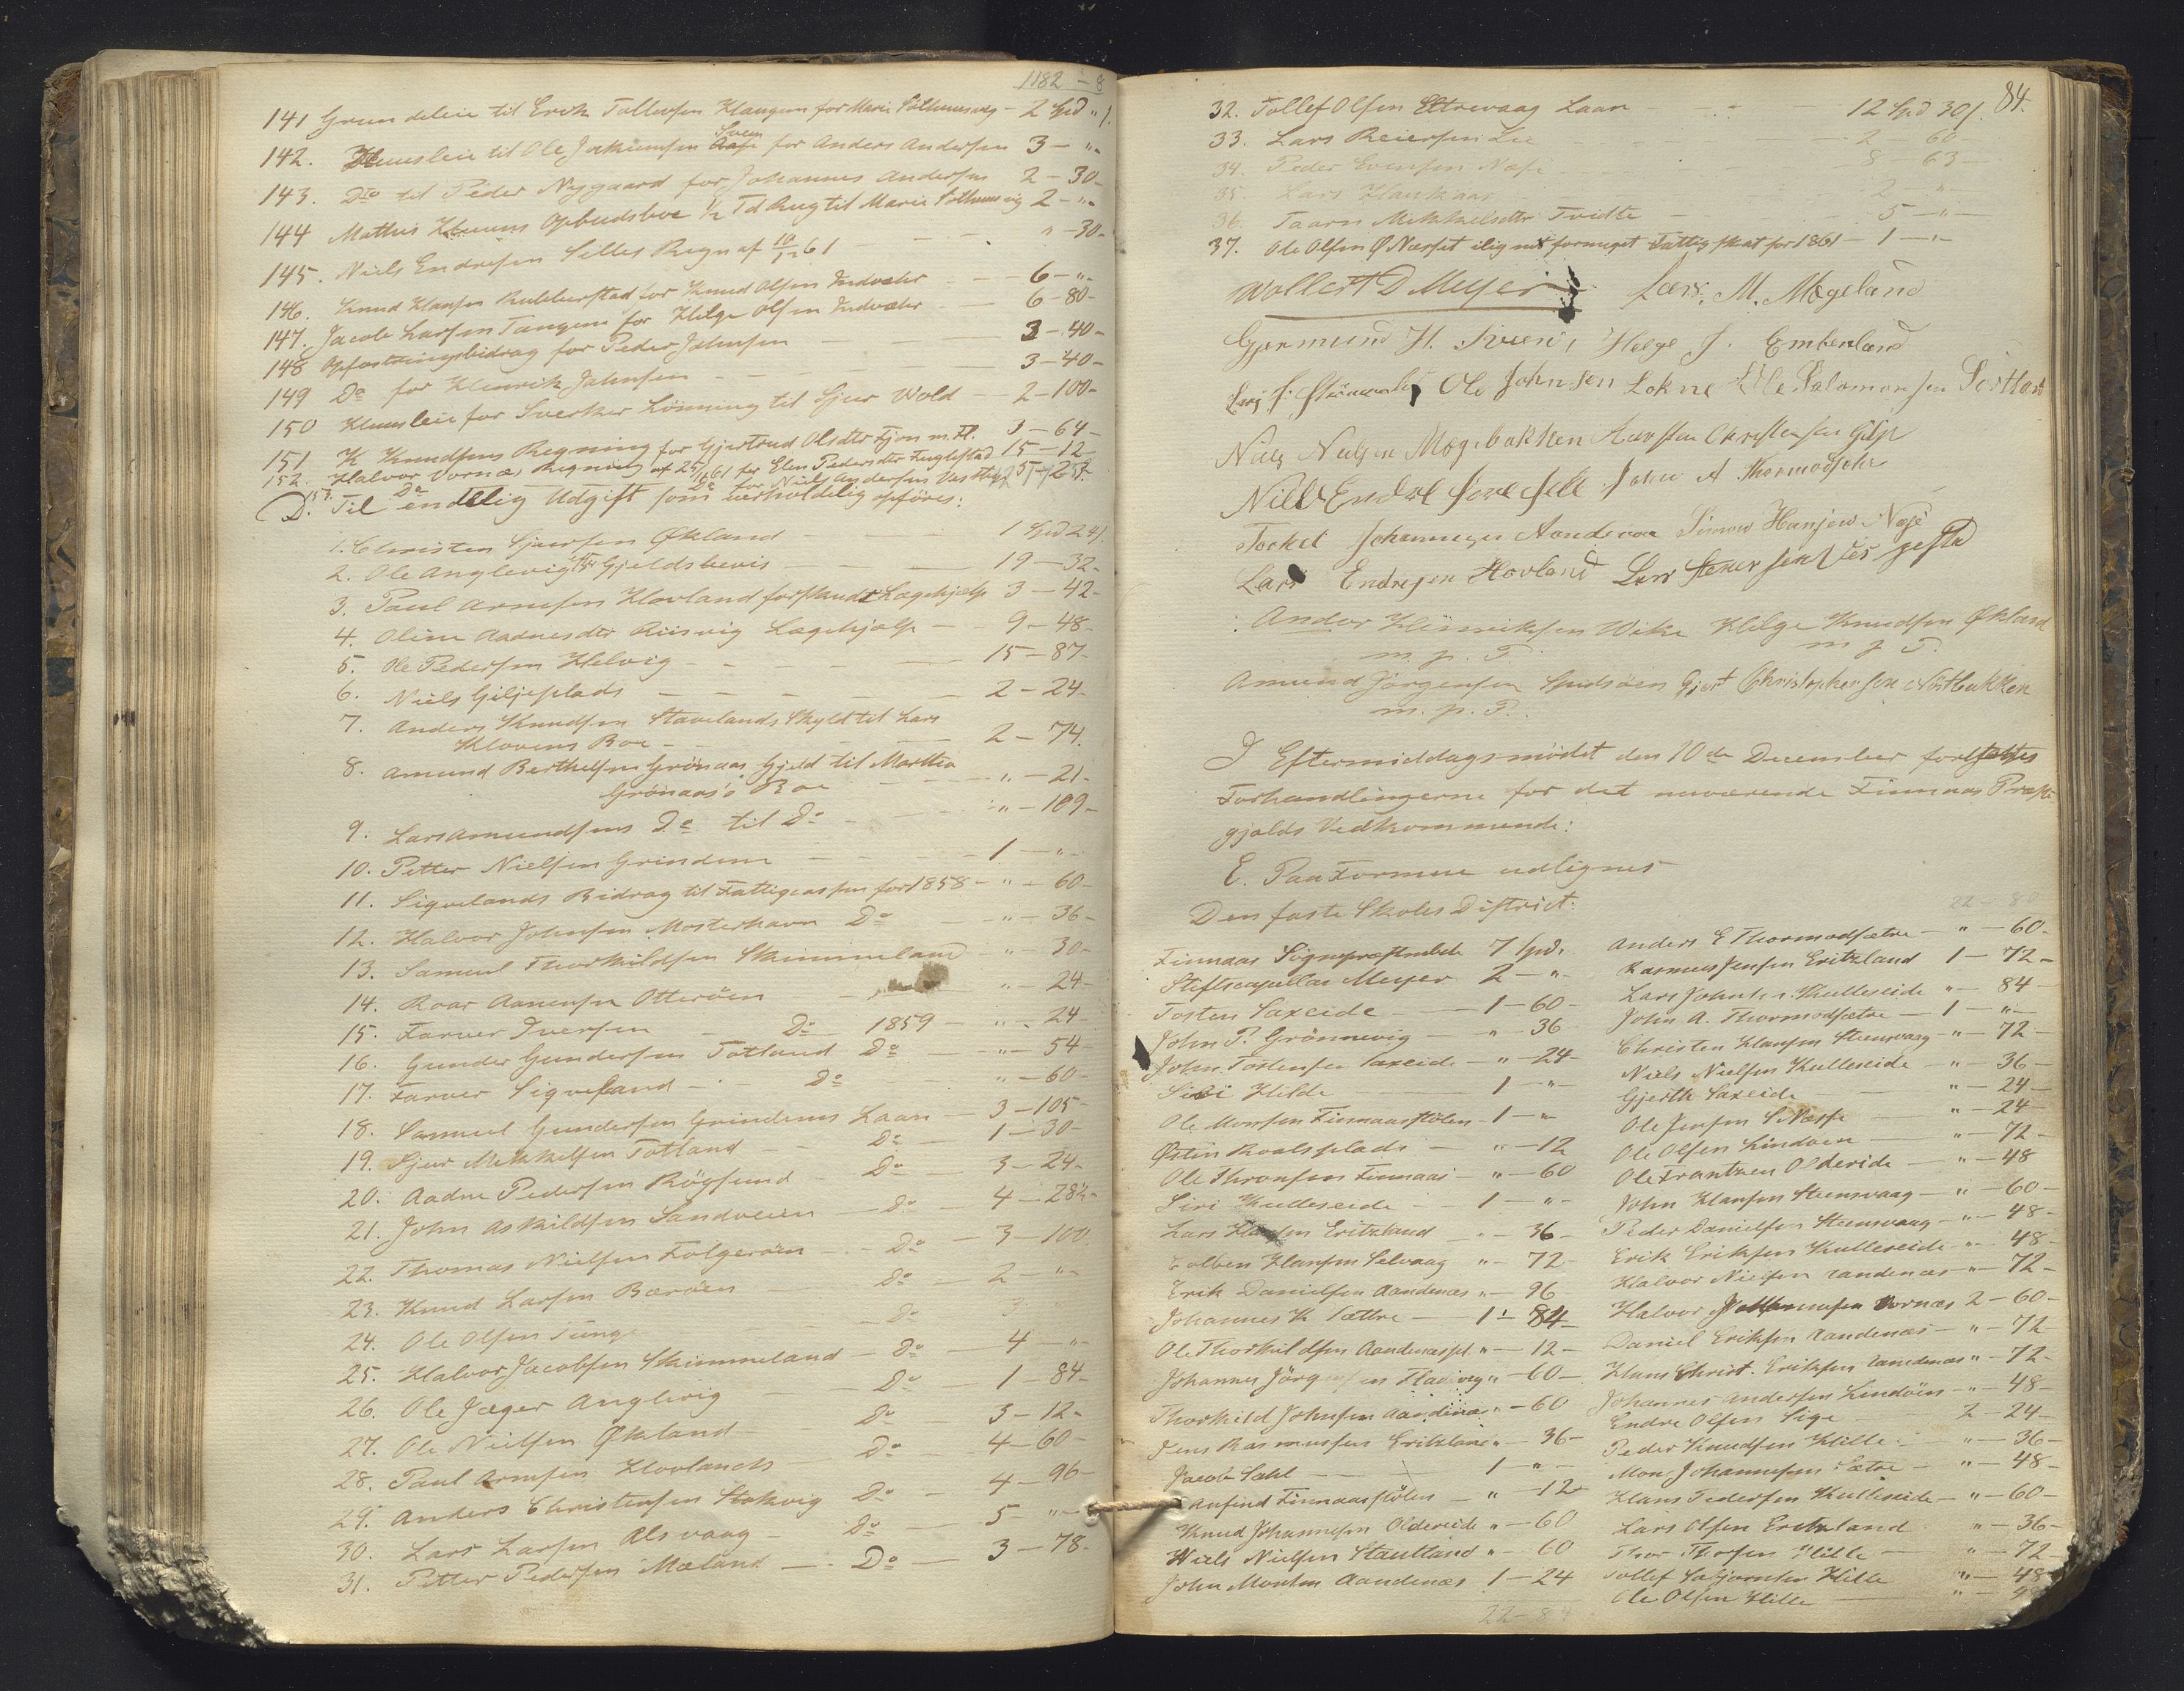 1182 - 8
141 Grundleie til Erik Tollevsen Haugen for Marie Sølhuusvig - 2 Spd " s.
142. Huusleie til Ole Joakimsen Svem for Anders Andersen 3 - "-
143. Dto til Peder Nygaard for Johannes Andersen 2 - 30-
144 Mathis Opbudsboe 1/2 Td Rug til Marie Sølhuusvig 2 - "-
145. Niels Endresen Selles Regn af 10/12 61 " - 30-
146. Knud Hansen Rubberstad for Knud Olsen Indvær - 6 - "-
147. Jacob Larsen Tangene for Helge Olsen Indvær 6 - 80-
148 Opfostringsbidrag for Peder Johnsen 3 - 40-
149 Do for Henrik Johnsen 3 - 40-
150 Huusleie for Sverker Lønning til Sjur Wold - 2 - 100-
151 K Knudsens Regning for Gjertrud Olsdtr Fjon m. Fl. 3 - 64-
152. Halvor Vornæs Regning af 25/1 61 for Elen Pedersdtr Fuglestad 15 - 12
153. Do Do for Niels Andersen
D. Til endelig Udgift som uerholdelig opføres:
1. Christen Sjursen Økland 1 Spd 24 s.
2. Ole Anglevigs Gjeldsbevis 19 - 32-
3. Paul Arnesen Hovland forskudt Lægehjælp 3 - 42-
4. Oline Aadnesdtr Riisvig Lægehjælp - 9 - 48-
5. Ole Pedersen Helvig - 15 - 87-
6. Niels Giljeplads 2 - 24-
7. Anders Knudsen Stavelands Skyld til Lars
Klovens Boe - 2 - 74.
8. Amund Berthelsen Grönaas Gjeld til Martha
Grönaas's Boe " - 21-
9. Lars Amundsens Do til Do " - 109-
10. Petter Nielsen Grindene 1 - "-
11. Siqvelands Bidrag til Fattigcassen for 1858 - " - 60-
12. Halvor Johnsen Mosterhavn Do " - 36-
13. Samuel Thorkildsen Skimmeland " - 30-
14. Roar Aanensen Otterøen " - 24-
15. Farver Iversen - Do 1859 " - 24-
16. Gunder Gundersen Totland Do " - 54-
17. Farver Siqveland - Do " - 60-
18. Samuel Gundersen Grindens Laan - 3 - 105-
19. Sjur Mikkelsen Totland - Do 1 - 30-
20. Aadne Pedersen Rögsund Do 3 - 24-
21. John Askildsen Sandveien - Do 4 - 28½-
22. Thomas Nielsen Folgerøen - Do - 3 - 100
23. Knud Larsen Barøen Do - 2 - "-
24. Ole Olsen Tunge Do 3 "
25. Halvor Jacobsen Skimmeland - Do - 4 - "-
26. Ole Jæger Anglevig - Do - 1 - 84-
27. Ole Nielsen Økland - Do 3 - 12-
28. Paul Arnesen Hovlands Do 4 - 60-
29. Anders Christensen Stokvig Do - 4 - 96-
30. Lars Larsen Alsvaag - Do - 5 - "-
31. Petter Pedersen Mæland - Do - 3 - 78-
84.
32. Tollef Olsen Ettrevaag Laan 12 Spd 30 s.
33. Lars Reiersen Lie 2 - 60
34. Peder Evensen Næse 8 - 63
35. Lars Haukaas 2 - "-
36. Taarn Mikkelsdtr Tvidte 5 - "-
37. Ole Olsen Ø Næsset ilignet formeget Fattigskat for 1861 - 1 - "-
Wollert D Meyer Lars. M. Mögeland
Gjermund H. Kven, Helge J. Emberland
Ole Johnsen Lokne Ole Salomonsen Sortland
Niels Nielsen Mogebakken Aarsten Christensen Gilje
Niels Endre Selle John A Thormodsætre
Torkel Johannesen Aanderaa Simon Hansen Næse
Lars Endresen Hovland Lars
Ander Henriksen Wike Helge Knudsen Økland
m. p. P. m p P.
Amund Jörgensen Spidsöen Gjert Christophersen Nöstbakken
m. p. P.
I Eftermiddagsmödet den 10de December fortsattes
Forhandlingerne for det nuværende Finnaas Præste
gjelds Vedkommende:
E. Paa Formue udlignes
Den faste Skoles District.
Finnaas Sognepræstembede 7 Spd.
Stiftscapellan Meyer 2 - "-
Tosten Saxeide - 1 - 60-
John P. Grönnevig " 36
John Tostensen Saxeide - " - 24-
Siri Hilde 1 - "-
Ole Monsen Finnaasstölen - 1 - "
Østen Roalsplads - " - 12
Ole Thronsen Finnaas - " - 60
Siri Kulleseide - 1 - "-
Lars Hansen Eritzland - 36-
Colben Hansen Selvaag " - 72-
Erik Danielsen Aandenæs " - 96
Johannes K Sættre - 1 - 84-
Ole Thorkildsen Aandenæspl. " - 12-
Johannes Jörgensen " - 60-
Thorkild Johnsen Aandenæs " - 60
Jens Rasmussen Eritzland " - 36-
Jacob Sæhl 1 - "-
Anfind Finnaasstölen " - 12
Knud Johannesen Oldereide " - 60
Niels Nielsen Stautland " - 60
John Monsen Aandenæs 1 - 24
22 - 8
22 - 80
Anders E Thormodsætre - " - 60-
Rasmus Jensen Eritzland 1 - 72-
Lars Johnsen Kulleseide " - 84-
John A. Thormodsætre - 1 - "-
Christen Hansen Steensvaag - " - 72-
Niels Nielsen Kulleseide - " - 36-
Gjerth Saxeide " - 24-
Ole Jensen S. Næsse " - 24-
Ole Olsen Lindöen " - 72-
Ole Frantzen Oldereide - " - 48
John Hansen Steensvaag - " - 60-
Peder Danielsen Steensvaag - " - 48-
Erik Eriksen Kulleseide " - 48-
Halvor Nielsen Aandenæs " - 72-
Halvor Vornæs 2 - 60-
Daniel Eriksen Aandenæs - " - 72-
Hans Christ. Eriksen Aandenæs " - 72-
Johannes Andersen Lindöen - " - 48-
Endre Olsen Sige 2 - 24-
Peder Knudsen Hille " - 36-
Mons Johannesen Sætre - " - 48-
Hans Pedersen Kulleseide - " - 60-
Lars Olsen Eritzland " - 36-
Thor Thorsen Hille " - 72
Tollef Hille " - 48
Ole Olsen Hille